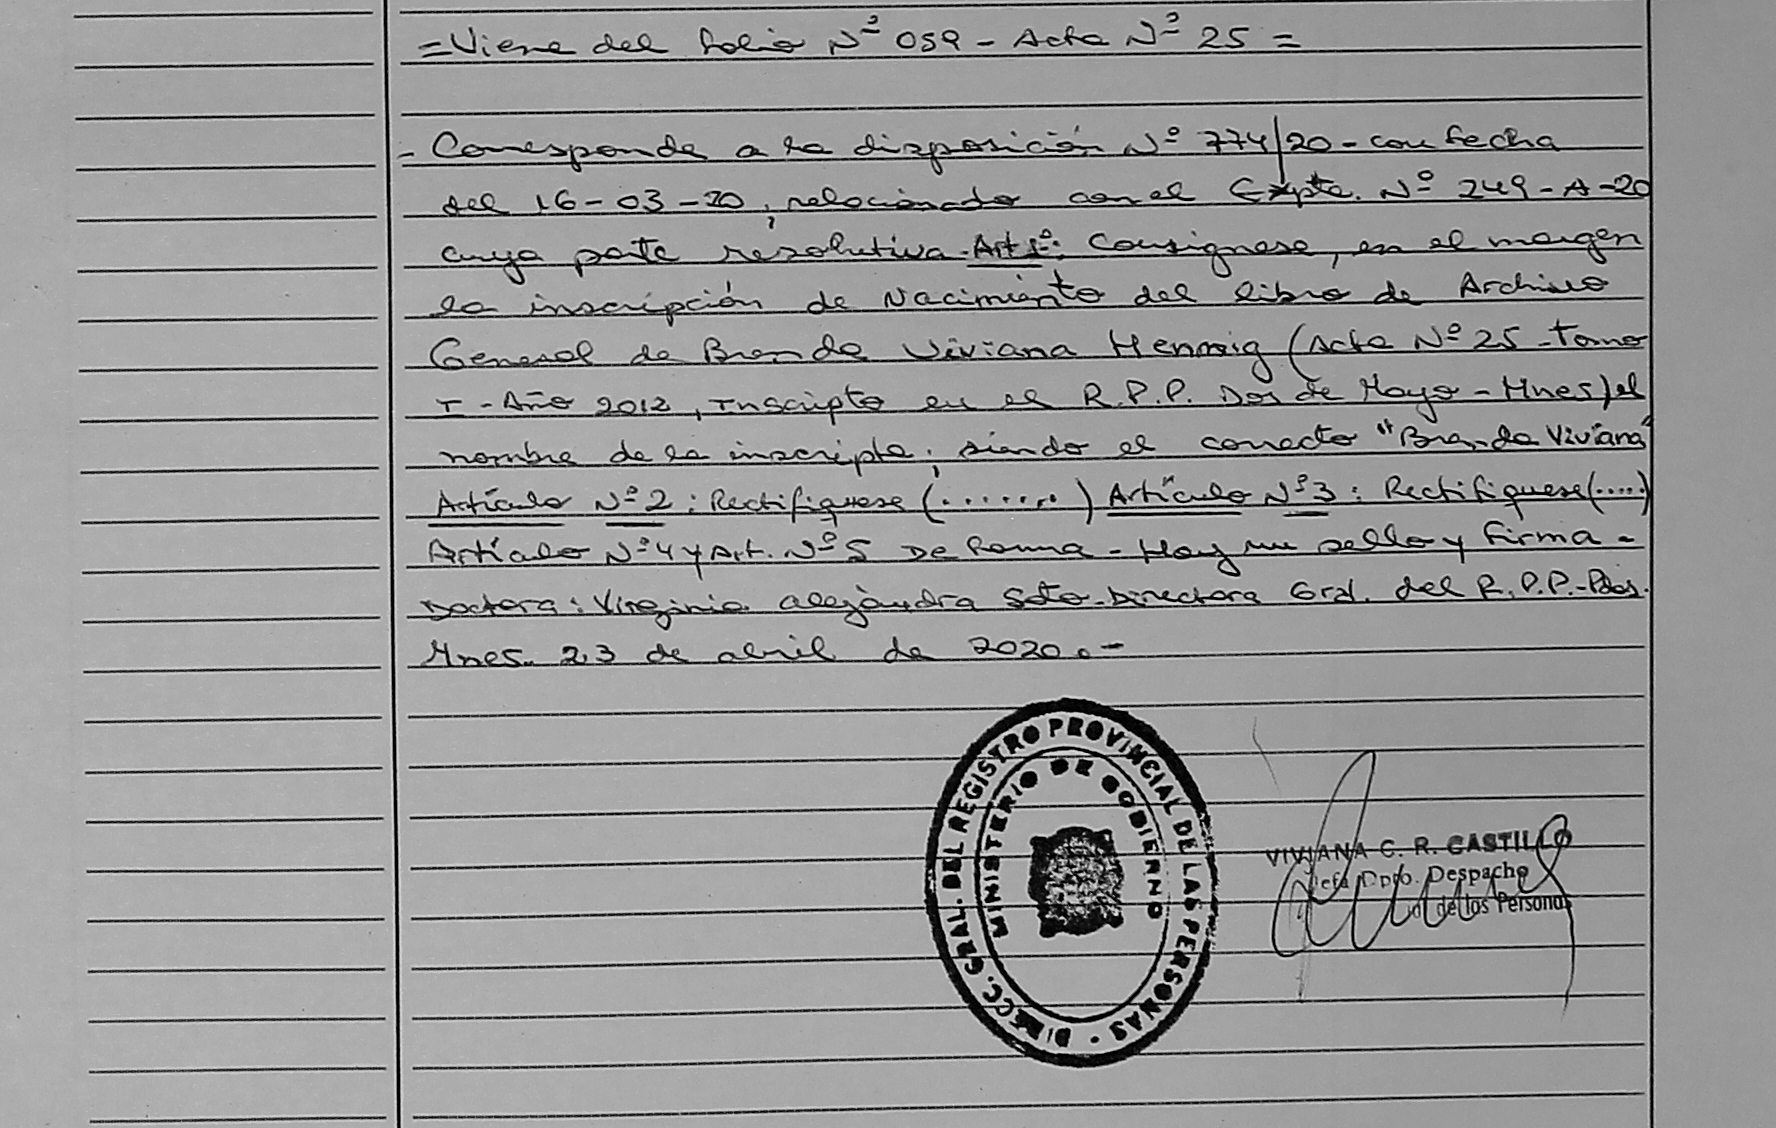 = Viene del folio Nº 059 - Acta Nº 25 =
- Corresponde a la disposición Nº 774/20 - con fecha
del 16-03-20, relacionado con el Expte. Nº 249-A-20
cuya parte resolutiva. Art 1º: Consignese, en el margen
la inscripción de Nacimiento del libro de Archivo
General de Brenda Viviana Hennig (Acta Nº 25 - Tomo
I - Año 2012, Inscripto en el R.P.P. Dos de Mayo - Mnes) el
nombre de la inscripta; siendo el correcto "Brenda Viviana"
Artículo Nº 2: Rectifiquese (.......) Artículo Nº 3: Rectifiquese (....)
Artículo Nº 4 y Art. Nº 5 De Forma - Hay un sello y firma -
Doctora: Virginia alejandra Soto - Directora Gral. del R.P.P. - Pdas.
Mnes. 23 de abril de 2020.-
DIRECC. GRAL. DEL REGISTRO PROVINCIAL DE LAS PERSONAS -
MINISTERIO DE GOBIERNO
VIVIANA C. R. CASTILLO
Jefa Dpto. Despacho
de las Personas